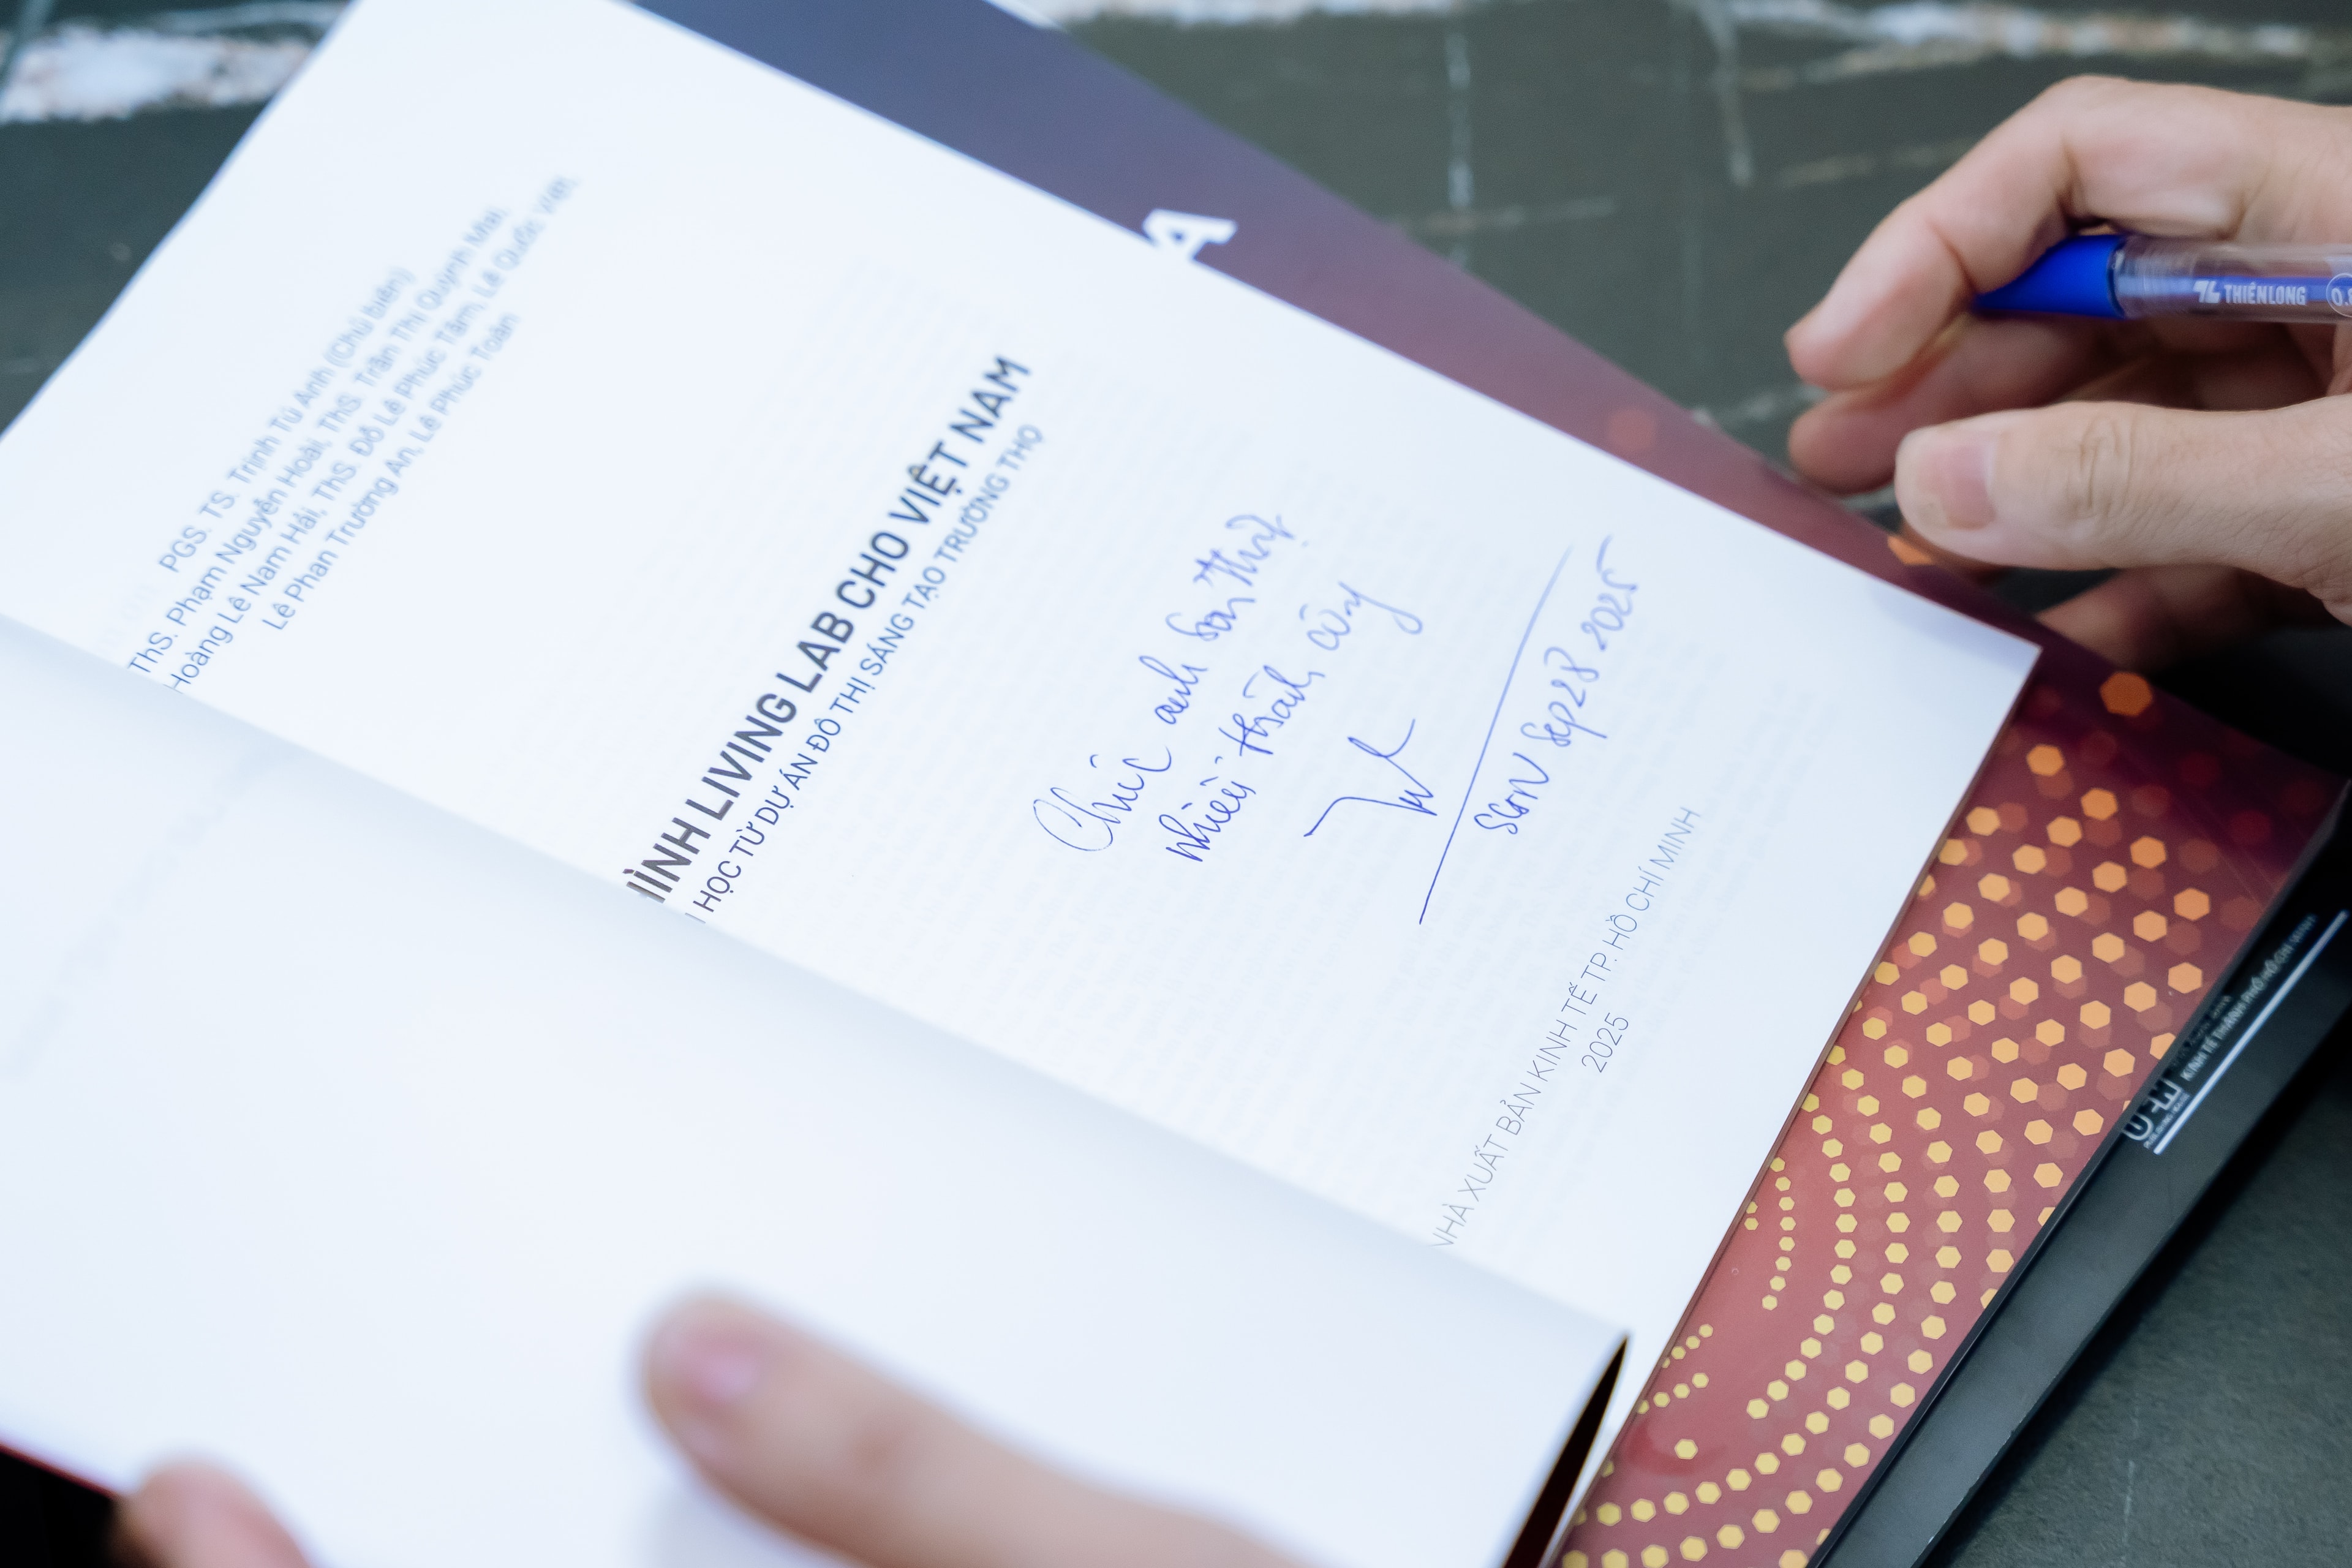 PGS. TS. Trịnh Tú Anh (Chủ biên)
ThS. Phạm Nguyễn Hoài, ThS. Trần Thị Quỳnh Mai,
Hoàng Lê Nam Hải, ThS. Đỗ Lê Phúc Tâm, Lê Quốc Việt,
Lê Phan Trường An, Lê Phúc Toàn
HÌNH LIVING LAB CHO VIỆT NAM
HỌC TỪ DỰ ÁN ĐÔ THỊ SÁNG TẠO TRƯỜNG THỌ
Chúc anh Sơn thật
nhiều thành công
Sep 28 2025
NHÀ XUẤT BẢN KINH TẾ TP. HỒ CHÍ MINH
2025
A
THIÊN LONG
UEH
KINH TẾ THÀNH PHỐ HỒ CHÍ MINH